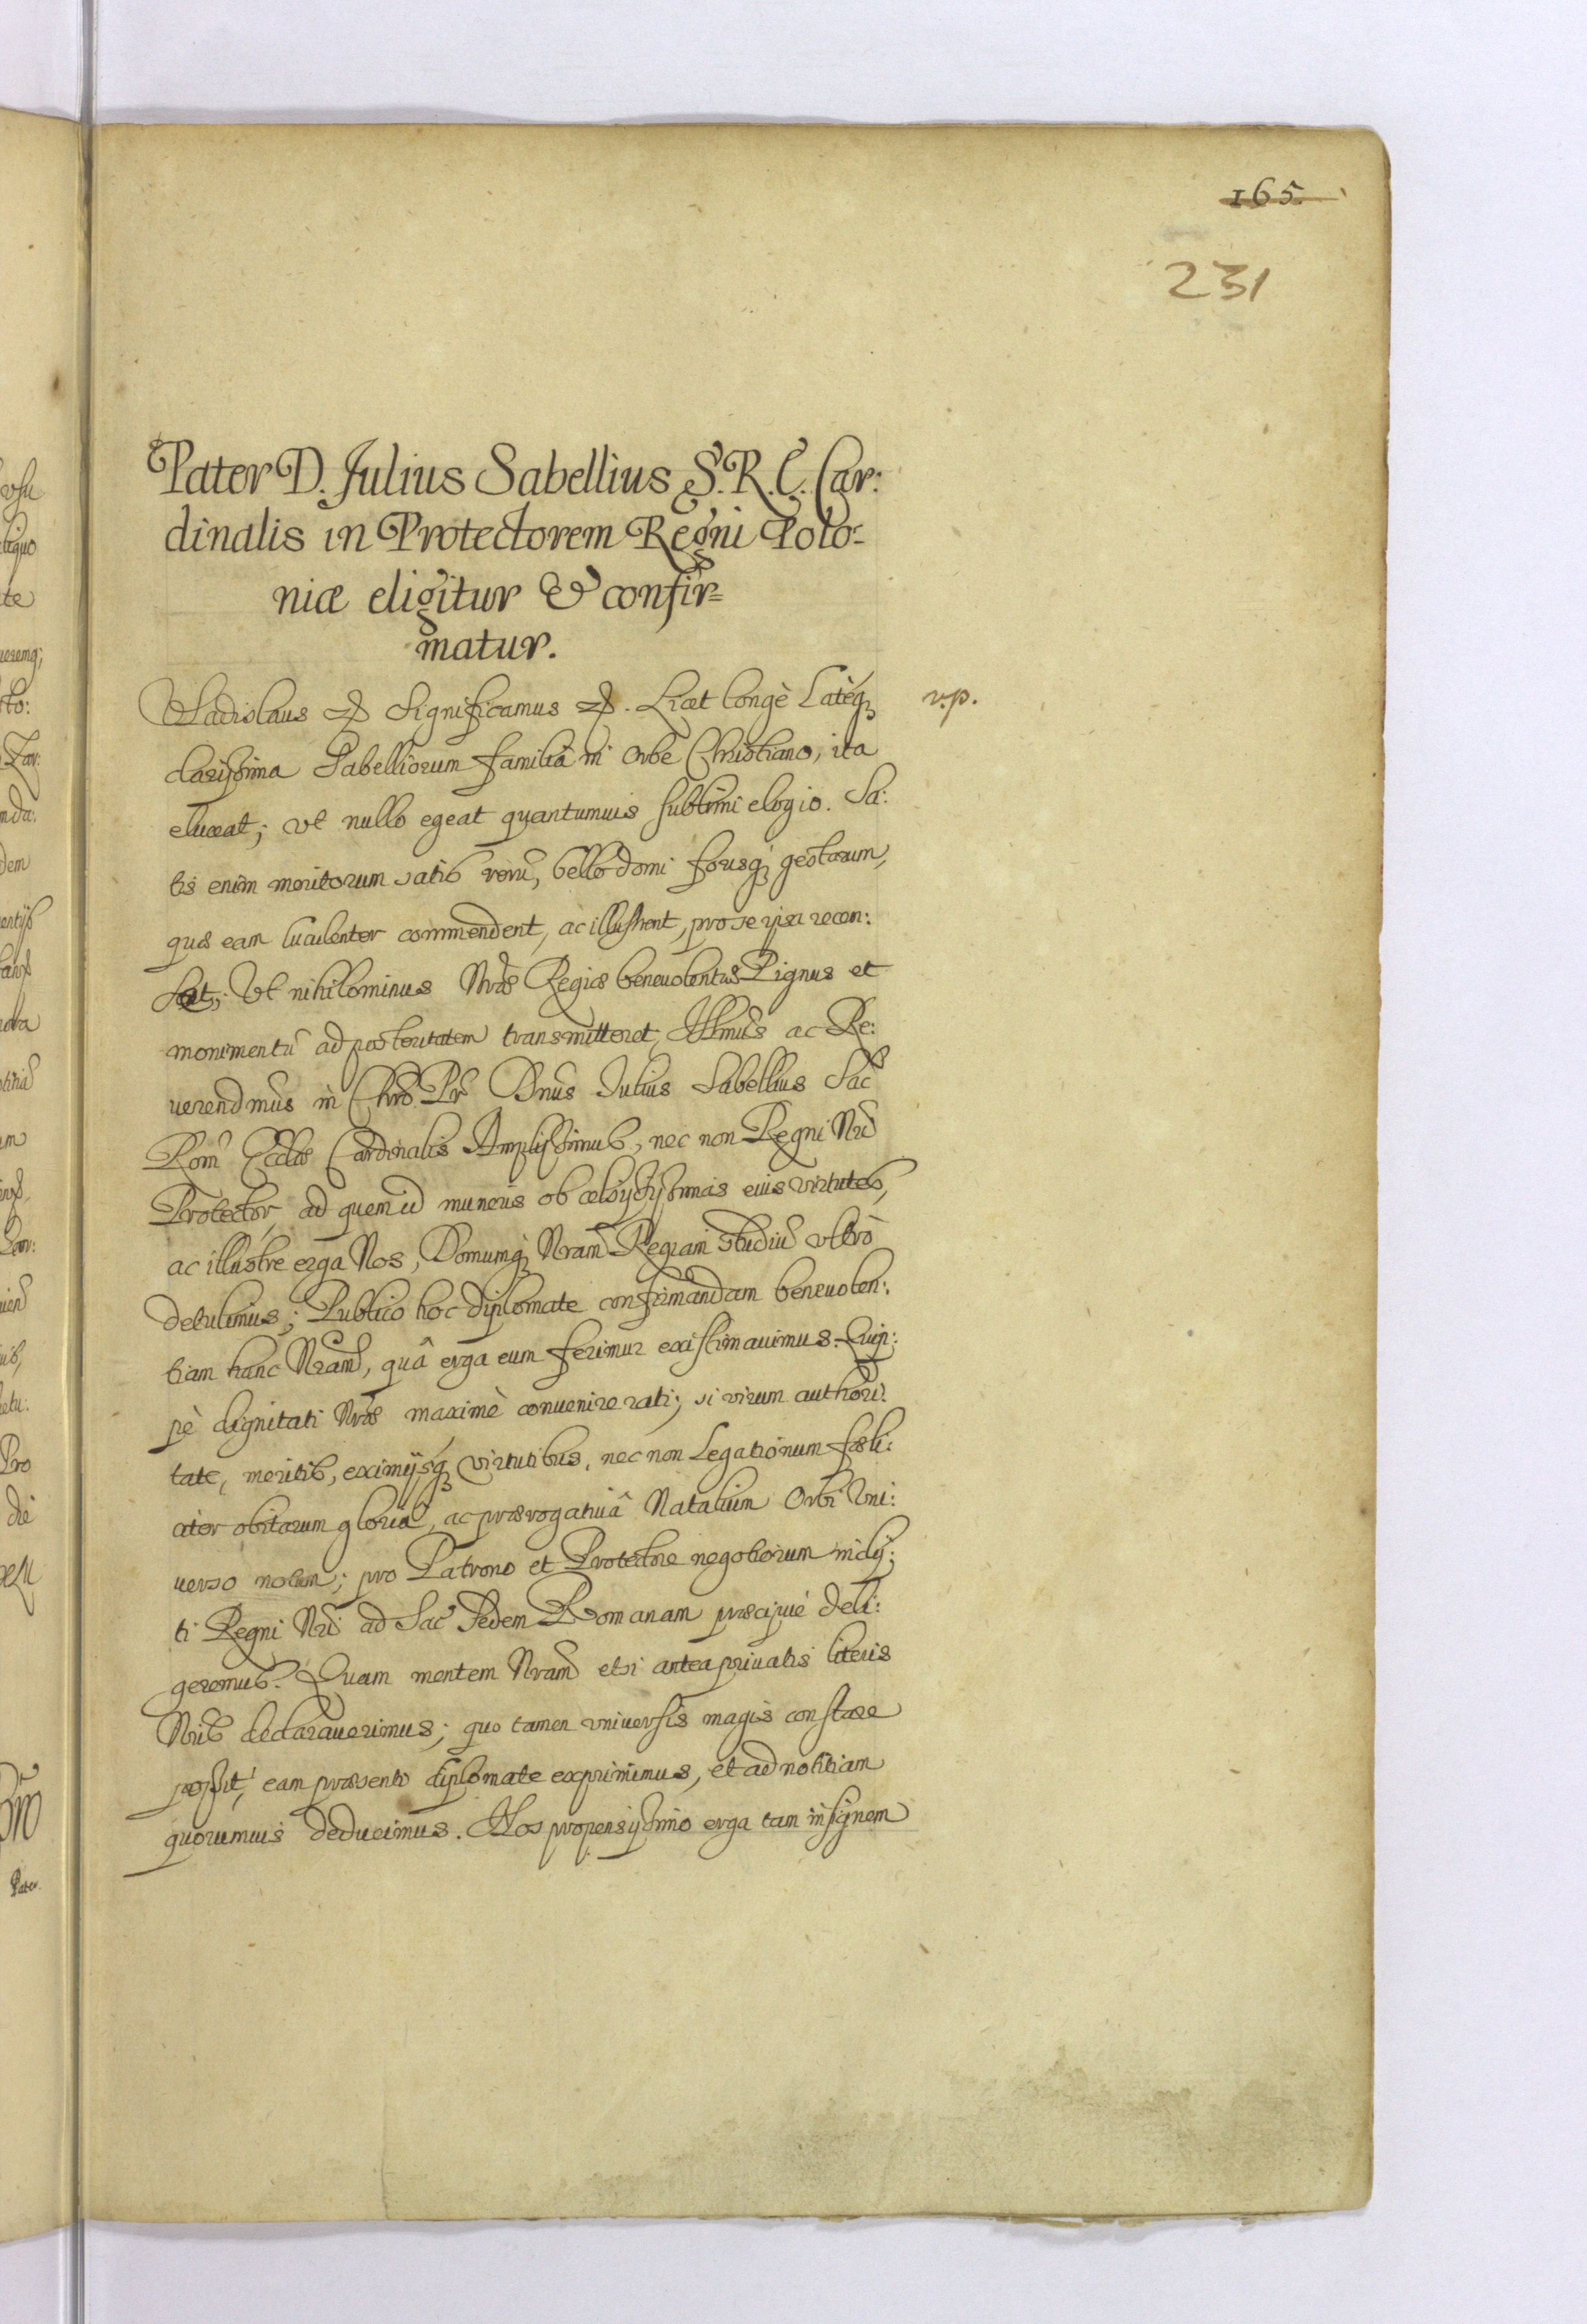 165.
231
Pater D. Julius Sabellius S. R. E. Car:
dinalis in Protectorem Regni Polo=
niæ eligitur & confir=
matur.
Vladislaus &c. Significamus &c. Licet longè Latèq; v.p.
clarissima Sabelliorum familia in Orbe Christiano, ita
eluceat; vt nullo egeat quantumuis sublimi elogio. Sa:
tis enim meritorum satis rerũ, bello domi forisq; gestarum,
quæ eam luculenter commendent, ac illustrent, pro se ipsa recen:
set; Vt nihilominus Nræ Regiæ beneuolentiæ Pignus et
monimentũ ad posteritatem transmitteret, Illmus ac Re:
uerendmus in Chro Pr Dnus Julius Sabellius Sac
Rom Ecclæ Cardinalis Amplissimus, nec non Regni Nri
Protector, ad quem id muneris ob celsissimas eius virtutes,
ac illustre erga Nos, Domumq; Nram Regiam studiũ vltrò
detulimus; Publico hoc diplomate confirmandam beneuolen:
tiam hanc Nram, quâ erga eum ferimur existimauimus. Quip:
pè dignitati Nræ maximè conuenire rati; si virum authori:
tate, meritis, eximijsq; virtutibus, nec non Legationum fæli:
citer obitarum gloria, ac prærogatiuâ Natalium Orbi Vni:
uerso notum; pro Patrono et Protectore negotiorum incly:
ti Regni Nri ad Sac Sedem Romanam præcipuè deli:
geremus. Quam mentem Nram etsi antea priuatis literis
Nris declarauerimus; quo tamen vniuersis magis constare
possit, eam præsenti diplomate exprimimus, et ad notitiam
quorumuis deducimus. Nos propensissimo erga tam insignem